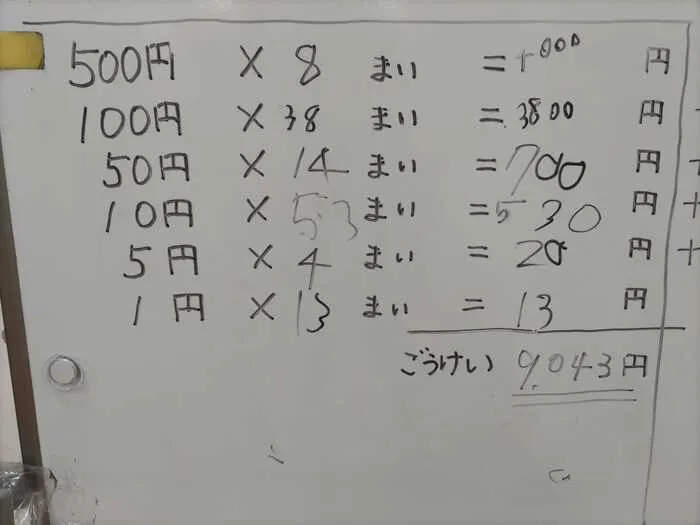 500円 × 8 まい = 4000 円
100円 × 38 まい = 3800 円 +
50円 × 14 まい = 700 円 +
10円 × 53 まい = 530 円 +
5円 × 4 まい = 20 円 +
1円 × 13 まい = 13 円
ごうけい 9,043円